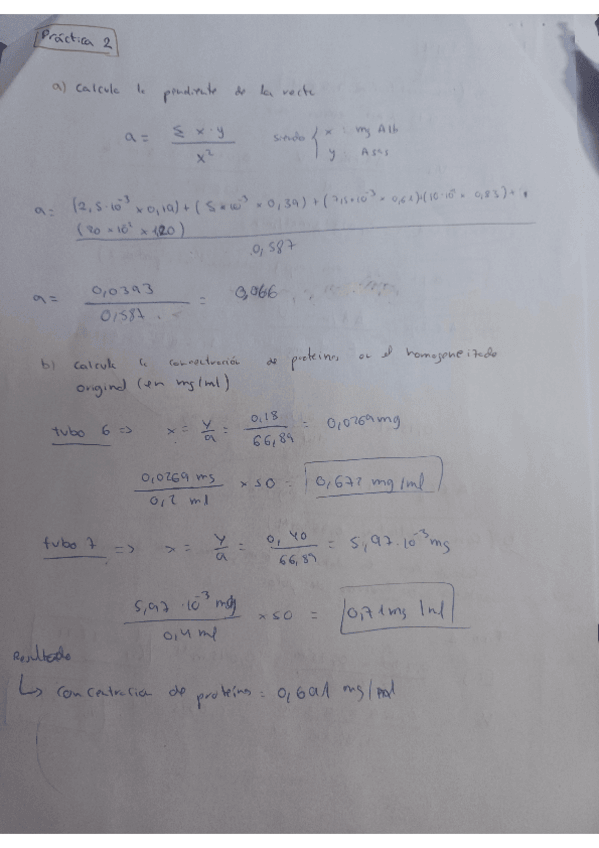 Práctica 2
a) Calcula la pendiente de la recta
a = Σ x · y / x² siendo { x = mg Alb
y = A595
a = (2,5·10⁻³ × 0,19) + (5×10⁻³ × 0,39) + (7,5×10⁻³ × 0,61) + (10·10⁻³ × 0,83) +
(20 × 10⁻³ × 1,20)
0,587
a = 0,0393 / 0,587 = 0,066
b) Calcula la concentración de proteínas en el homogeneizado
original (en mg/ml)
tubo 6 => x = y/a = 0,18 / 66,89 = 0,0269 mg
0,0269 mg / 0,2 ml × 50 = 0,672 mg/ml
tubo 7 => x = y/a = 0,40 / 66,89 = 5,97·10⁻³ mg
5,97 · 10⁻³ mg / 0,4 ml × 50 = 0,71 mg/ml
Resultado
↳ Concentración de proteínas = 0,691 mg/ml